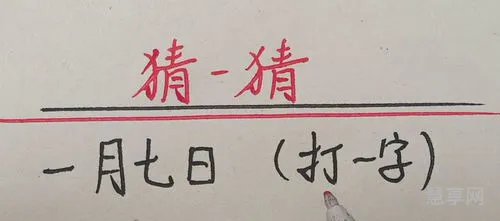 猜一猜
一月七日（打一字）
慧享网